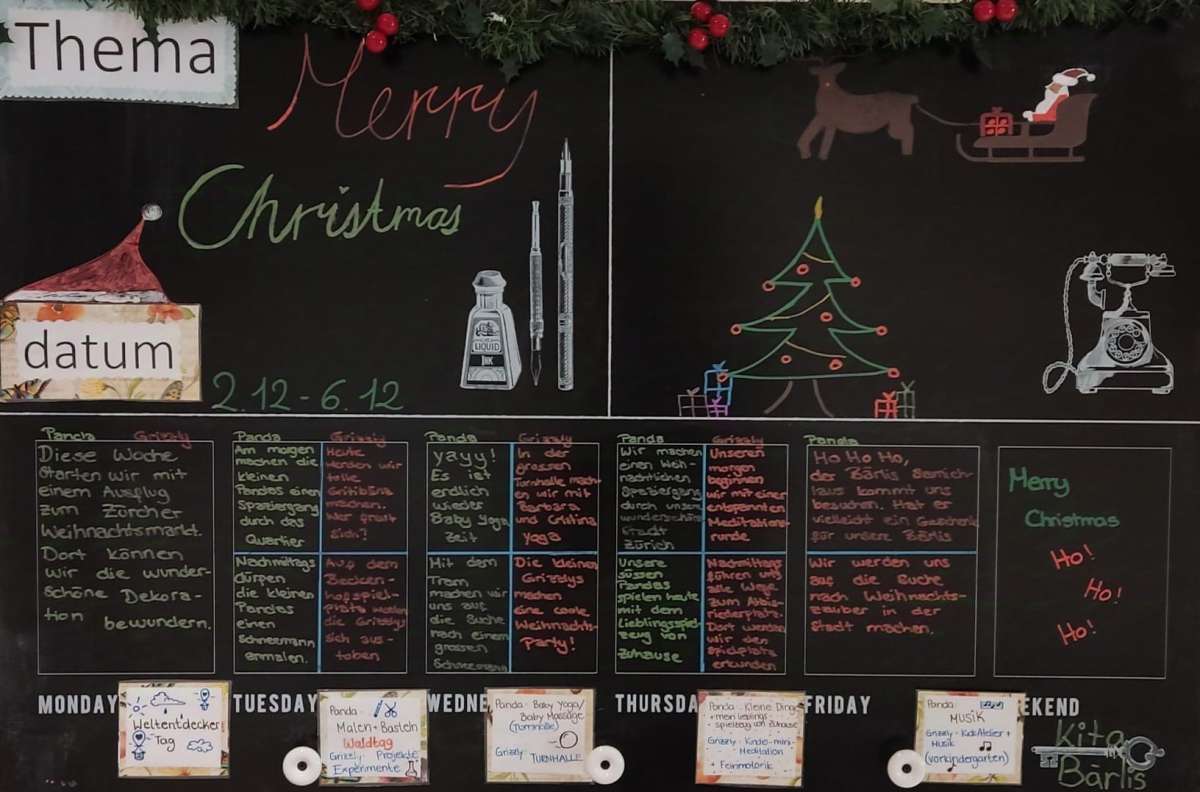 Thema
Merry
Christmas
LIQUID
INK
datum
2.12-6.12
Panda
Grizzly
Diese Woche
starten wir mit
einem Ausflug
zum Zürcher
Weihnachtsmarkt.
Dort können
wir die wunder-
schöne Dekora-
tion bewundern.
Panda
Am morgen
machen die
kleinen
Pandas einen
Spaziergang
durch das
Quartier
Grizzly
Heute
werden wir
tolle
machen.
Wer freut
sich?
Nachmittags
dürfen
die kleinen
Pandas
einen
Schneemann
anmalen.
Auf dem
Becken-
hofspiel-
platz werden
die Grizzlys
sich aus-
toben
Panda
yayy!
Es ist
endlich
wieder
Baby Yoga
Zeit
Grizzly
In der
grossen
Turnhalle mach-
en wir mit
Barbara
und Cristina
yoga
Mit dem
Tram
machen wir
uns auf
die Suche
nach einem
grossen
Schneemann
Die kleinen
Grizzlys
machen
eine coole
Weihnachts-
Party!
Panda
Wir machen
einen Weih-
nachtlichen
Spaziergang
durch unsere
wunderschöne
Stadt
Zürich
Grizzly
Unseren
morgen
beginnen
wir mit einer
entspannten
Meditations-
runde
Unsere
süssen
Pandas
spielen heute
mit dem
Lieblingsspiel-
zeug von
Zuhause
Nachmittags
führen uns
alle Wege
zum Albis-
riederplatz.
Dort werden
wir den
Spielplatz
erkunden
Panda
Ho Ho Ho,
der Bärlis Samich-
laus kommt uns
besuchen. Hat er
vielleicht ein Geschenk
für unsere Bärlis
Wir werden uns
auf die Suche
nach Weihnachts-
zauber in der
Stadt machen.
Merry
Christmas
Ho!
Ho!
Ho!
MONDAY
TUESDAY
WEDNE
THURSDA
FRIDAY
EKEND
Weltentdecker
Tag
Panda -
Malen + Basteln
Waldtag
Grizzly: Projekte
Experimente
Panda - Baby Yoga/
Baby Massage
(Turnhalle)
Grizzly: TURNHALLE
Panda - Kleine Dinge
+ mein Lieblings-
spielzeug von Zuhause
Grizzly - Kinder-mini-
Meditation
+ Feinmotorik
Panda -
MUSIK
Grizzly - KidsAtelier +
Musik
(Vorkindergarten)
Kita
Bärlis